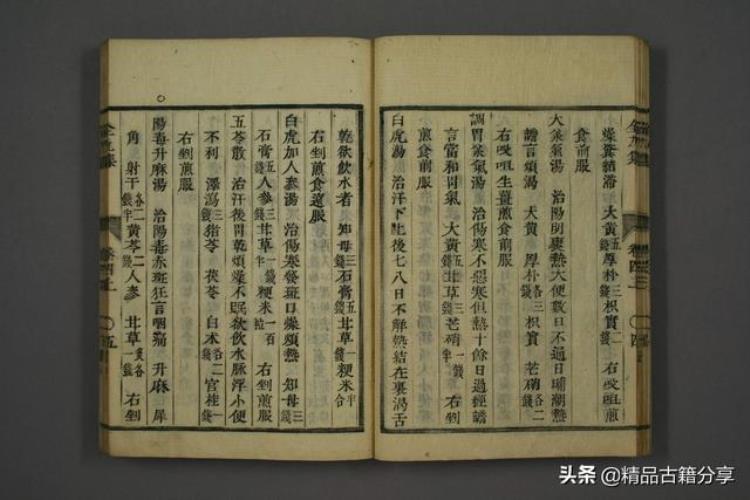 燥糞結滯 大黃五錢厚朴三錢枳實二錢右㕮咀煎
食前服
大承氣湯 治陽明 熱大便數日不通日晡潮熱
譫言煩渴 大黃 厚朴各三錢枳實 芒硝各二錢
右㕮咀生薑煎食前服
調胃承氣湯 治傷寒不惡寒但熱十餘日過經譫
言當和胃氣 大黃五錢甘草三錢芒硝一錢 右剉
煎食前服
白虎湯 治汗下吐後七八日不解熱結在裏渴舌
乾欲飲水者 知母三錢石膏五錢甘草一錢粳米半合
右剉煎食遠服
白虎加人參湯 治傷寒發斑口燥煩熱 知母三錢
石膏五錢人參三錢甘草一錢半粳米一百粒 右剉煎服
五苓散 治汗後胃乾煩燥不眠欲飲水脉浮小便
不利 澤瀉三錢猪苓 茯苓 白术各二錢官桂一錢
右剉煎服
陽毒升麻湯 治陽毒赤斑狂言咽痛 升麻 犀
角 射干各二錢半黄芩二錢人參 甘草各一錢 右剉
全生集 卷四上 五
头条 @精品古籍分享